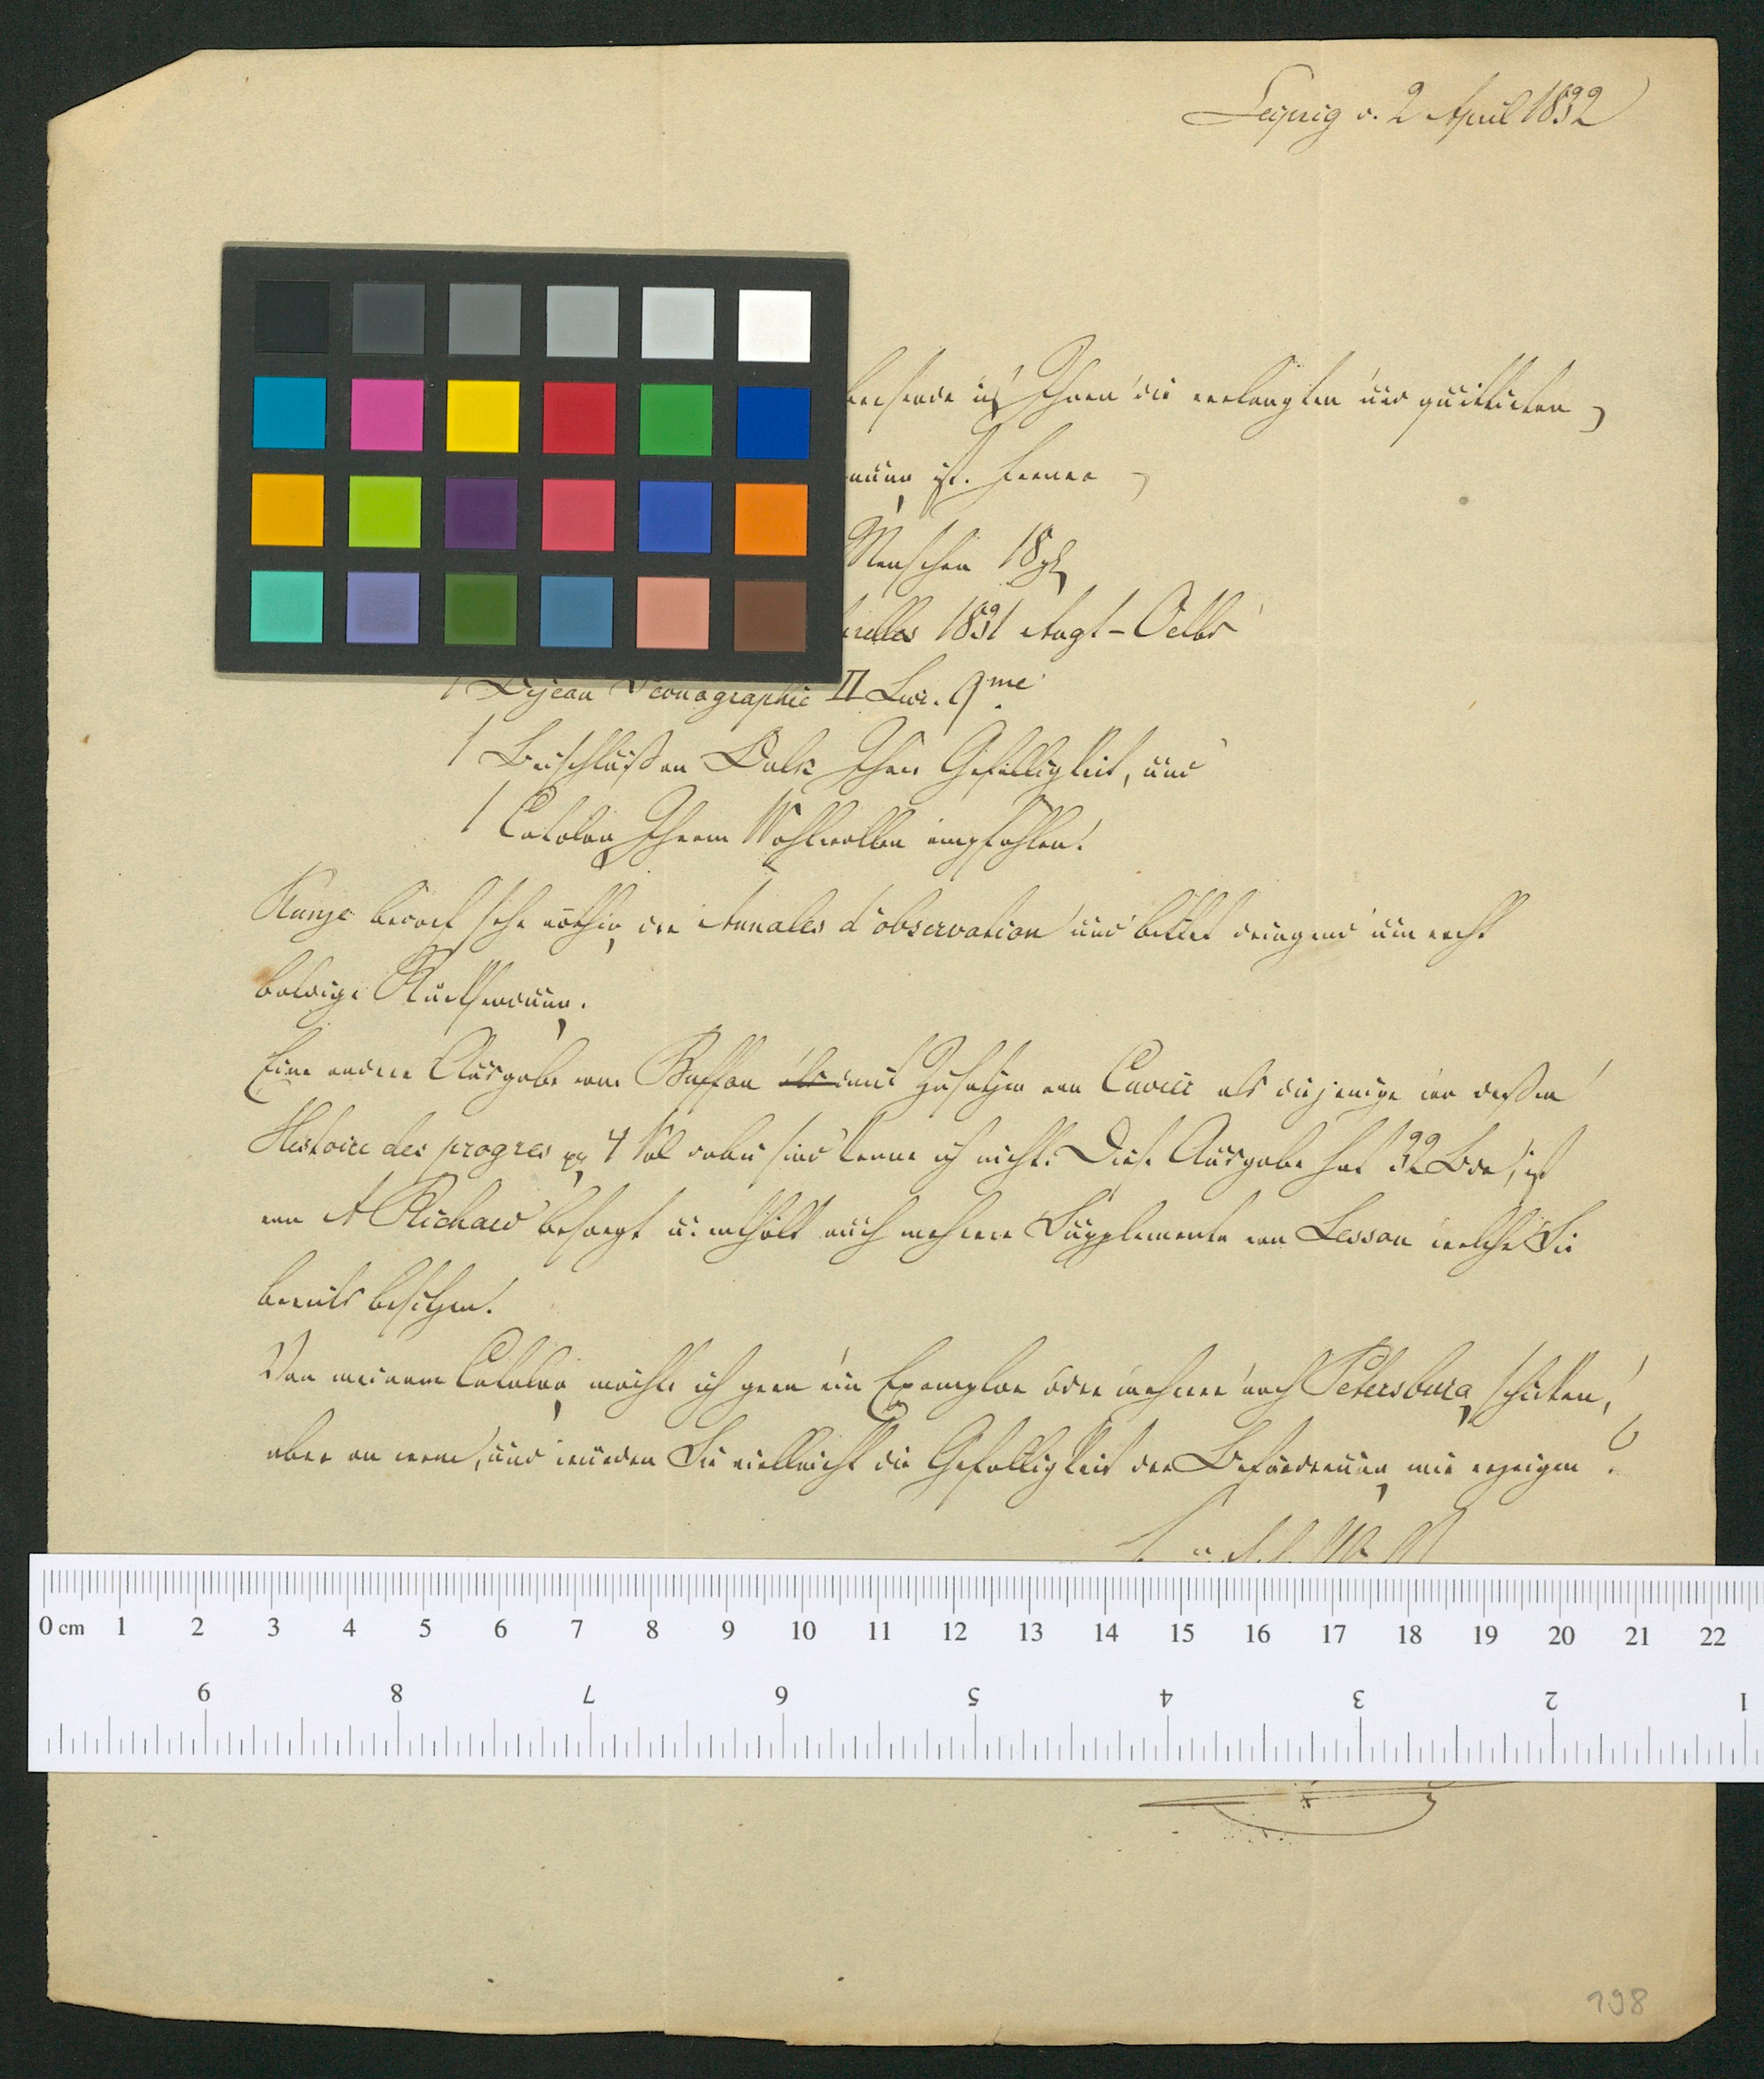 Leipzig d. 2 April 1832
übersende ich Ihnen die verlangten und quittirten
ist. Ferner
Menschen 18 gl
1831 Augt-Octbr
1 Dejean Iconographie II Livr. 9me
1 Beischluß an Ihrer Gefälligkeit, und
1 Catalog Ihrem Wohlwollen empfohlen.
Kunze bedarf sehr nöthig die Annales d'observation und bittet dringend um recht
baldige Rücksendung.
Eine andere Ausgabe von Buffon mit Zusätzen von Cuvier als diejenige wo dessen
Histoire des progres pp 4 Vol dabei sind kenne ich nicht. Diese Ausgabe hat 32 Bde, ist
von A Richard besorgt u. enthält auch mehrere Supplemente von Lesson welche Sie
bereits besitzen.
Von meinem Catalog möchte ich gern ein Exemplar oder mehrere nach Petersburg schicken,
aber an wem, und würden Sie vielleicht die Gefälligkeit der Beförderung mir erzeigen?
0 cm 1 2 3 4 5 6 7 8 9 10 11 12 13 14 15 16 17 18 19 20 21 22
9 8 7 6 5 4 3 2 1
198